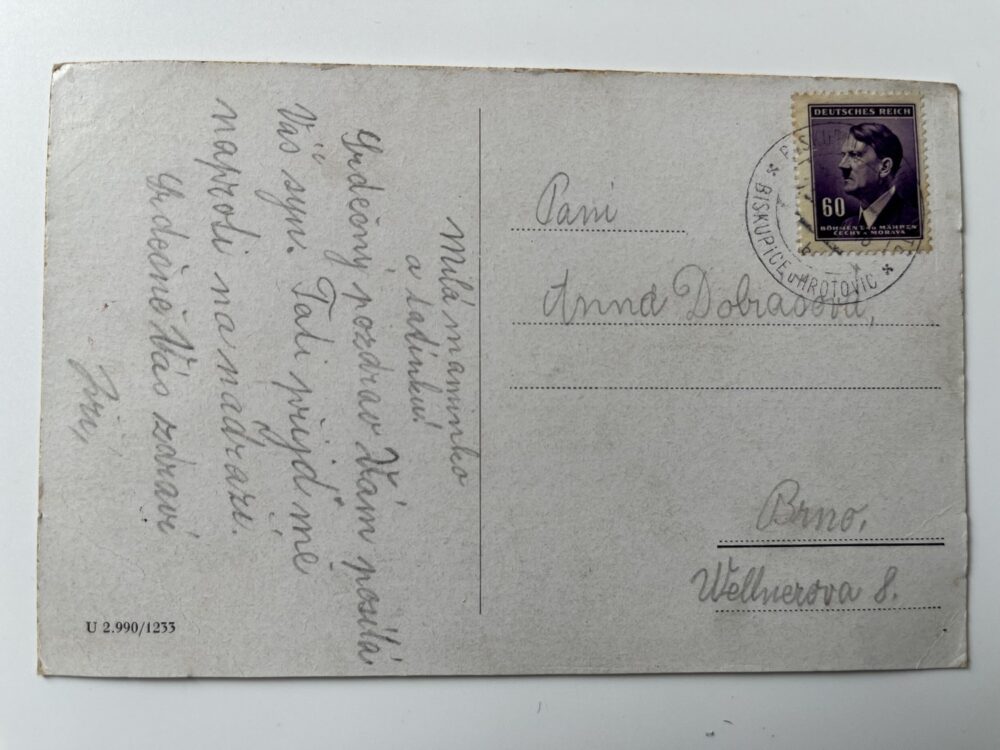 Milá maminko
a tatínku!
Srdečný pozdrav Vám posílá
Váš syn. Tati přijď mě
naproti na nádraží.
Srdečně Vás zdraví
Jiří,
U 2.990/1233
DEUTSCHES REICH
60
BÖHMEN und MÄHREN
ČECHY a MORAVA
BISKUPICE u HROTOVIC
Paní
Anna
Brno,
Wellnerova 8.